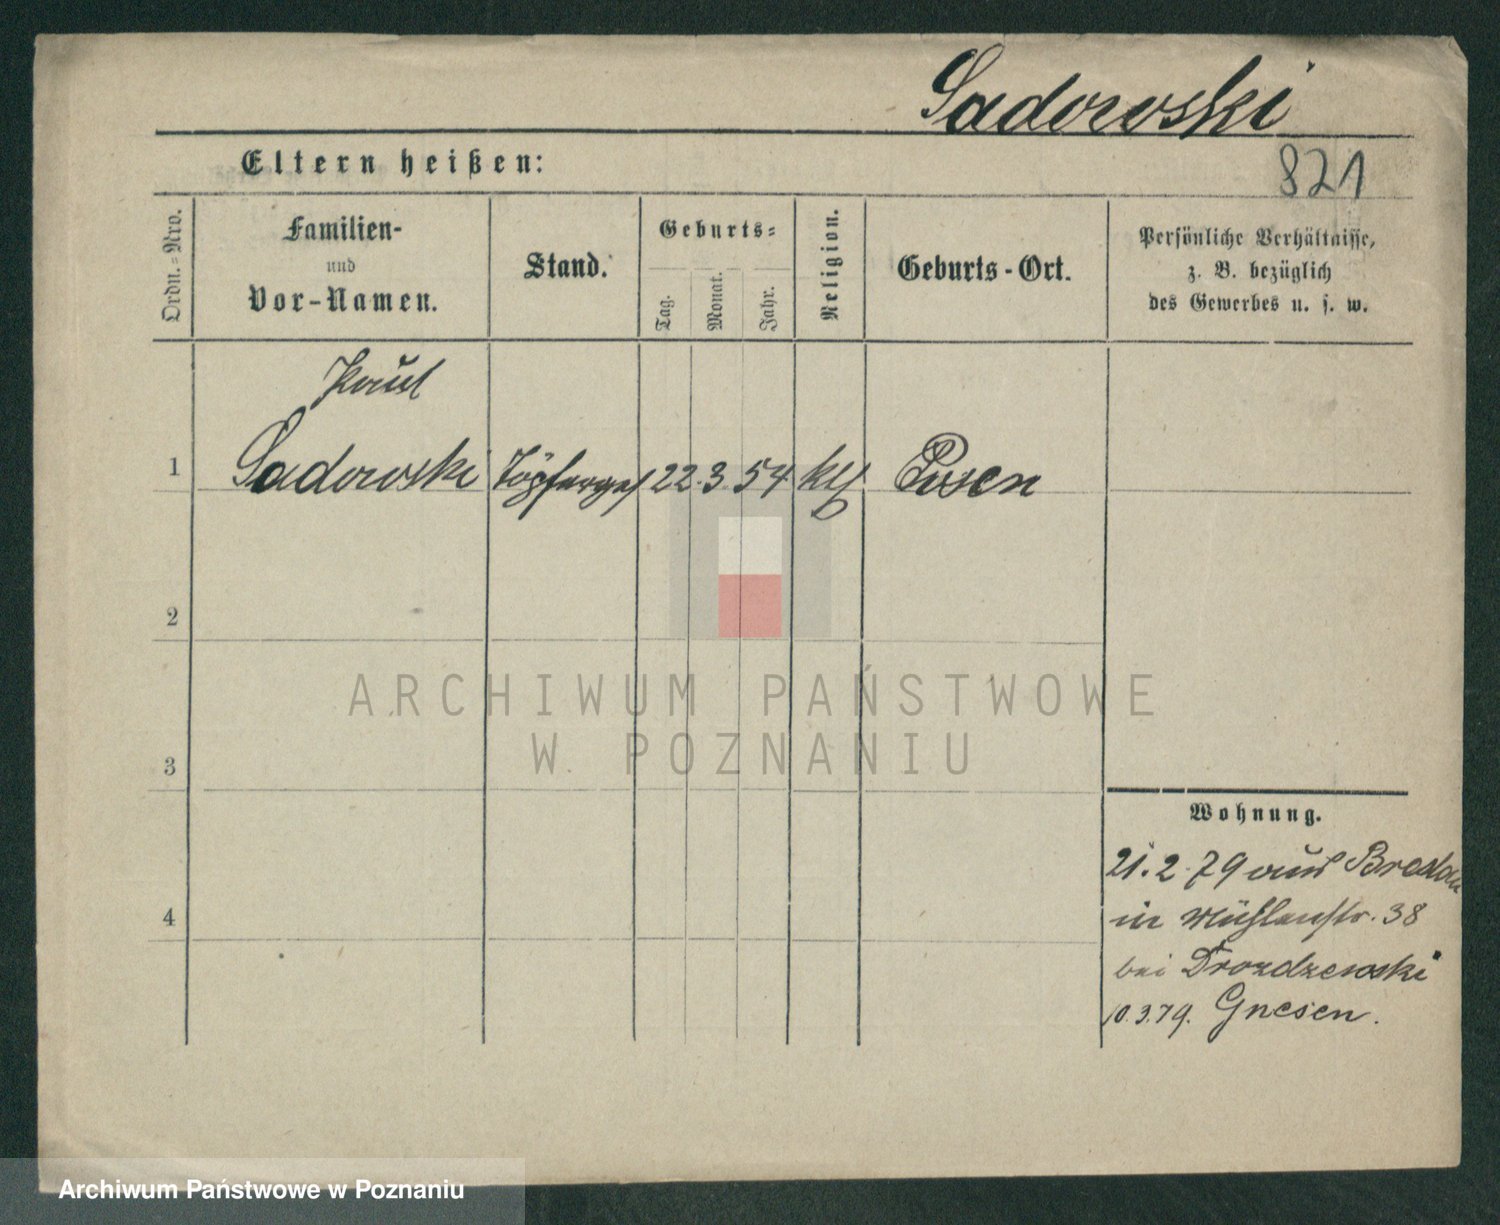 Sadowski
Eltern heißen:
821
Ordn.=Nro.
Familien-
und
Vor-Namen.
Stand.
Geburts=
Tag.
Monat.
Jahr.
Religion.
Geburts-Ort.
Persönliche Verhältnisse,
z. B. bezüglich
des Gewerbes u. s. w.
Paul
1 Sadowski Töpferges 22. 3. 54 kth Posen
2
3
4
ARCHIWUM PAŃSTWOWE
W POZNANIU
Wohnung.
21.2.79 aus Breslau
in Mühlenstr. 38
bei Drozdzewski
10.3.79. Gnesen.
Archiwum Państwowe w Poznaniu